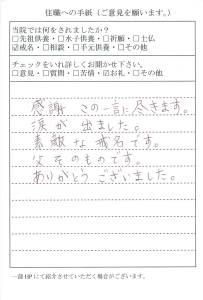 住職への手紙(ご意見を願います。)
当院では何をされましたか?
□先祖供養・□水子供養・□祈願・□土仏
☑戒名・□相談・□手元供養・□その他
チェックをいれ詳しくお聞かせ下さい。
□意見・□質問・□苦情・☑お礼・□その他
感謝 この一言に尽きます。
涙が出ました。
素敵な戒名です。
父そのものです。
ありがとうございました。
一部HPにて紹介させていただく場合がございます。